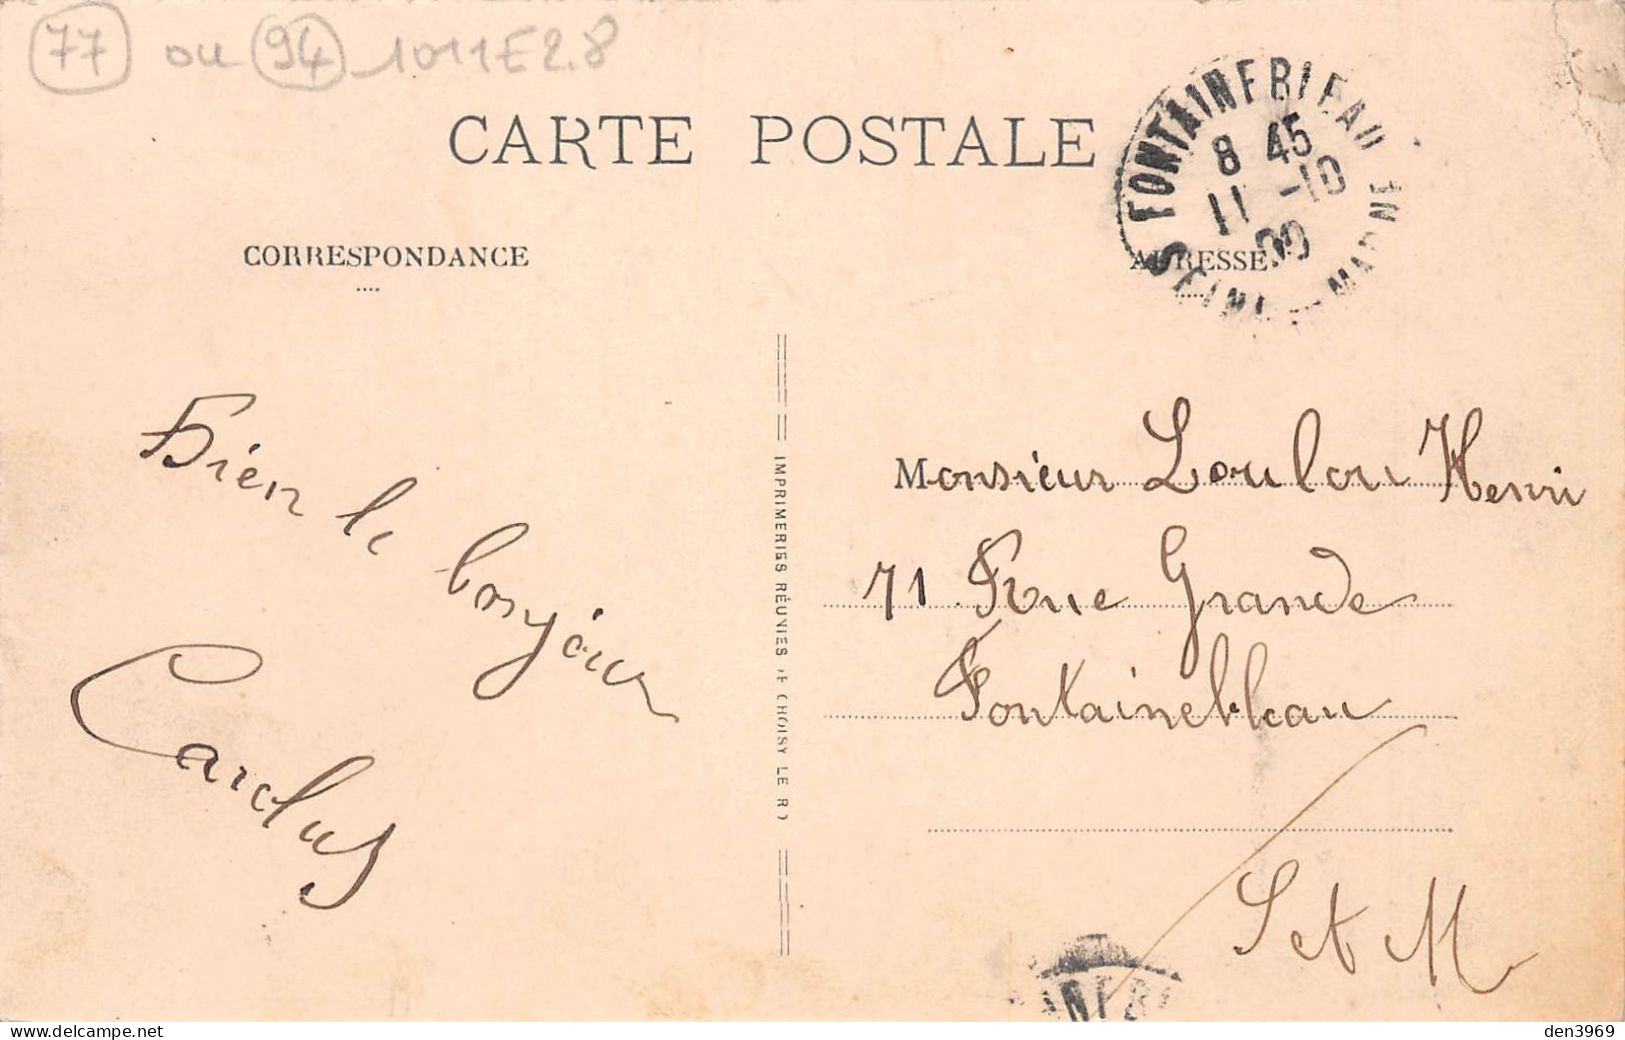 77 ou 94 1011E2.8
CARTE POSTALE
CORRESPONDANCE
ADRESSE
FONTAINEBLEAU
SEINE-ET-MARNE
8 45
11 -10
09
Bien le bonjour
Monsieur Loulou Henri
71 Rue Grande
Fontainebleau
S et M
IMPRIMERIES RÉUNIES DE CHOISY LE R
den3969